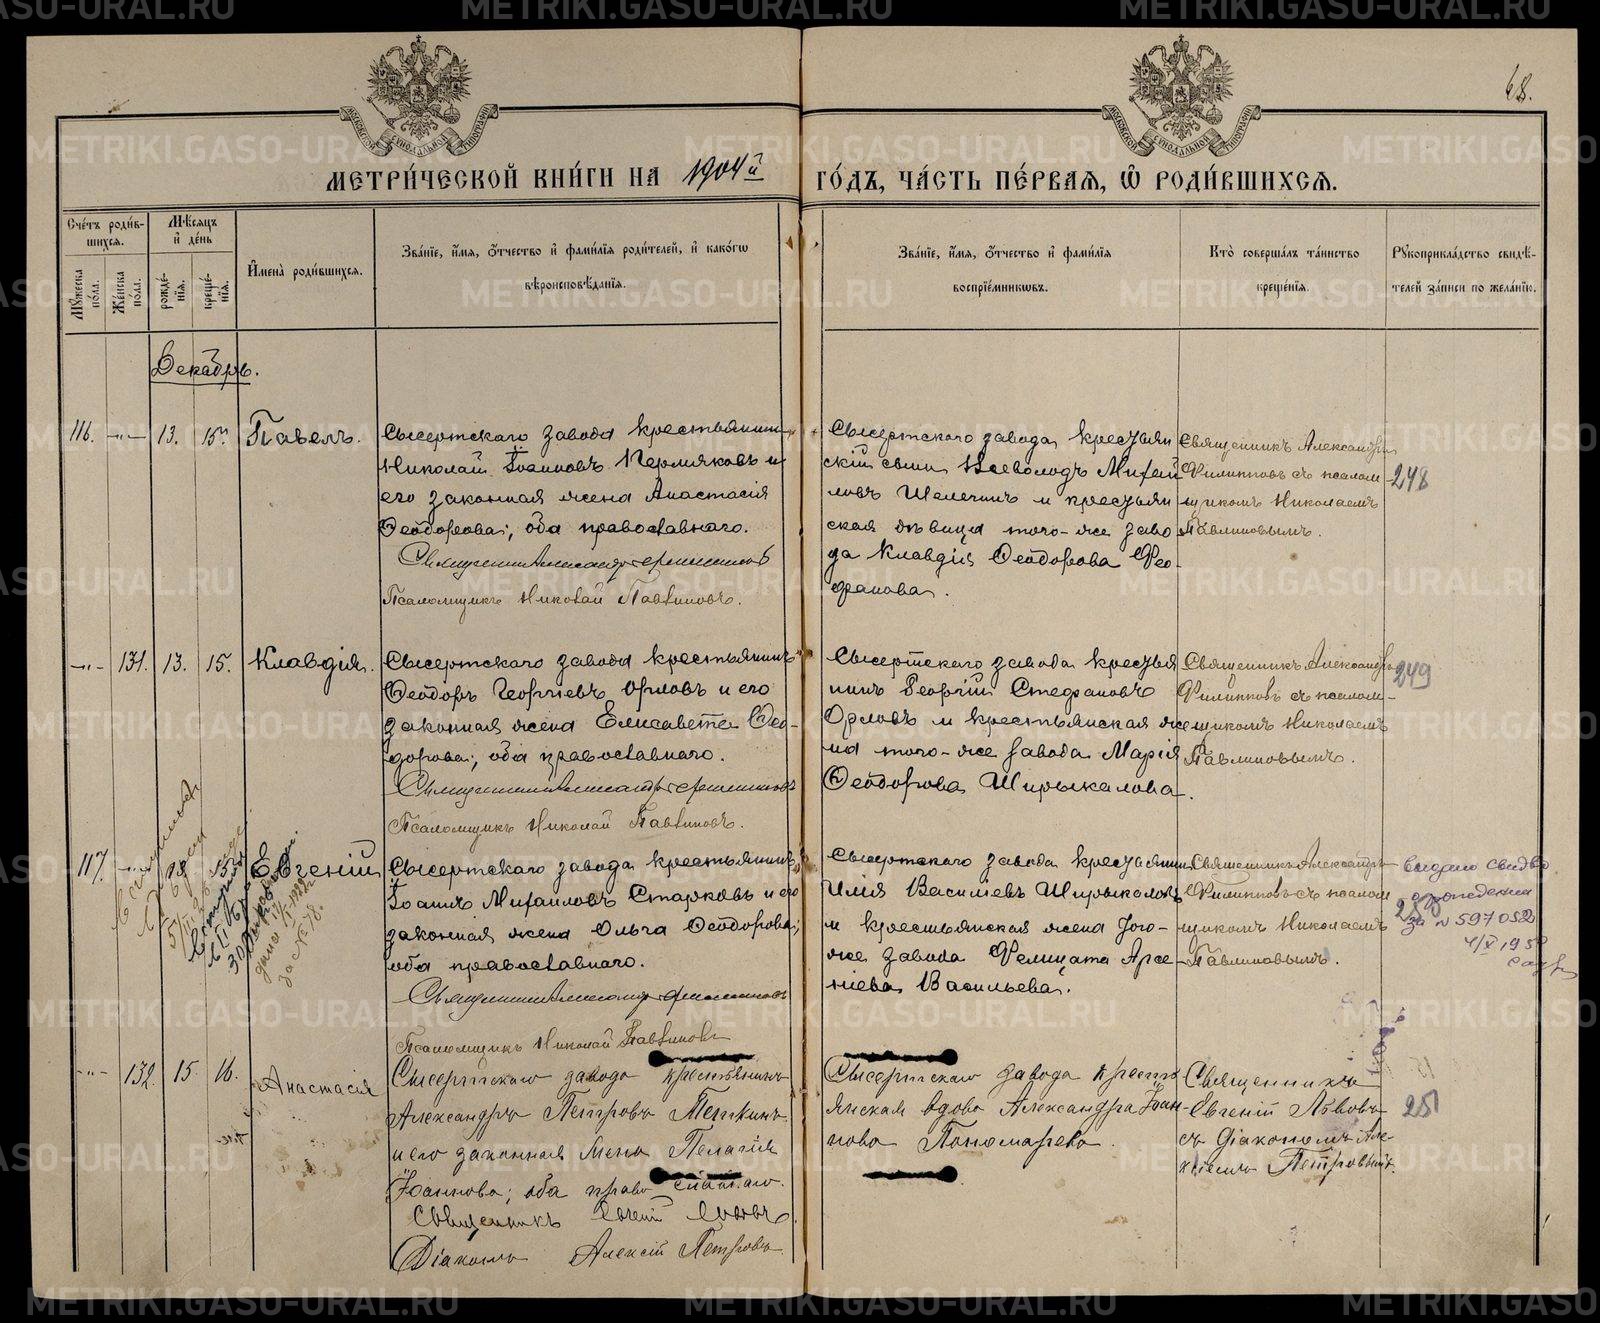 68.
МЕТРИ́ЧЕСКОЙ КНИ́ГИ НА 1904й ГО́ДЪ, ЧА́СТЬ ПЕ́РВАѦ, Ѽ РОДИ́ВШИХСѦ.
Сче́тъ роди́в-
шихсѧ.
Мꙋ́жеска по́ла.
Же́нска по́ла.
Мѣ́сѧцъ и҆ де́нь
рожде́-
нїѧ.
креще́-
нїѧ.
И҆мена̀ роди́вшихсѧ.
Зва́нїе, и҆́мѧ, ѻ҆́тчество и҆ фами́лїѧ роди́телей, и҆ како́гѡ
вѣроисповѣ́данїѧ.
Зва́нїе, и҆́мѧ, ѻ҆́тчество и҆ фами́лїѧ
воспрїе́мникѡвъ.
Кто̀ соверша́лъ та́инство
креще́нїѧ.
Рꙋкоприкла́дство свидѣ́-
телей за́писи по жела́нїю.
Декабрь.
116. -"- 13. 15. Павелъ.
Сысертскаго завода крестьянинъ
Николай Іоанновъ Пермяковъ и
его законная жена Анастасія
Ѳеодорова; оба православнаго.
Священникъ Александръ Филипповъ
Псаломщикъ Николай Павлиновъ.
Сысертскаго завода, крестьян
скій сынъ Всеволодъ Михай
ловъ Шелегинъ и крестьян
ская дѣвица того-же заво
да Клавдія Ѳеодорова Ѳео-
фанова.
Священникъ Александръ
Филипповъ съ псалом
щикомъ Николаемъ
Павлиновымъ.
248
-"- 131. 13. 15. Клавдія.
Сысертскаго завода крестьянинъ
Ѳеодоръ Георгіевъ Орловъ и его
законная жена Елисавета Ѳео-
дорова; оба православнаго.
Священникъ Александръ Филипповъ
Псаломщикъ Николай Павлиновъ.
Сысертскаго завода крестья
нинъ Георгій Стефановъ
Орловъ и крестьянская же
на того-же завода Марія
Ѳеодорова Ширыкалова.
Священникъ Александръ
Филипповъ съ псалом-
щикомъ Николаемъ
Павлиновымъ.
249
117. -"- 13. 15. Евгеній
Сысертскаго завода крестьянинъ
Іоаннъ Михаиловъ Старковъ и его
законная жена Ольга Ѳеодорова;
оба православнаго.
Священникъ Александръ Филипповъ
Псаломщикъ Николай Павлиновъ
Сысертскаго завода крестьянинъ
Илія Васильевъ Ширыкаловъ
и крестьянская жена того-
же завода Фелицата Арсе-
ніева Васильева.
Священникъ Александръ
Филипповъ съ псалом
щикомъ Николаемъ
Павлиновымъ.
250
выдано свидво
о рождении
за №597052
-"- 132. 15. 16. Анастасія
Сысертскаго завода крестьянинъ
Александръ Петровъ Теткинъ
и его законная жена Пелагія
Іоаннова; оба православнаго.
Священникъ Евгеній Львовъ
Діаконъ Алексій Петровъ
Сысертскаго завода крестьянская вдова Александра Іоан-
нова Пономарева.
Священникъ
Евгеній Львовъ
съ Діакономъ Але-
ксіемъ Петровымъ.
251
METRIKI.GASO-URAL.RU